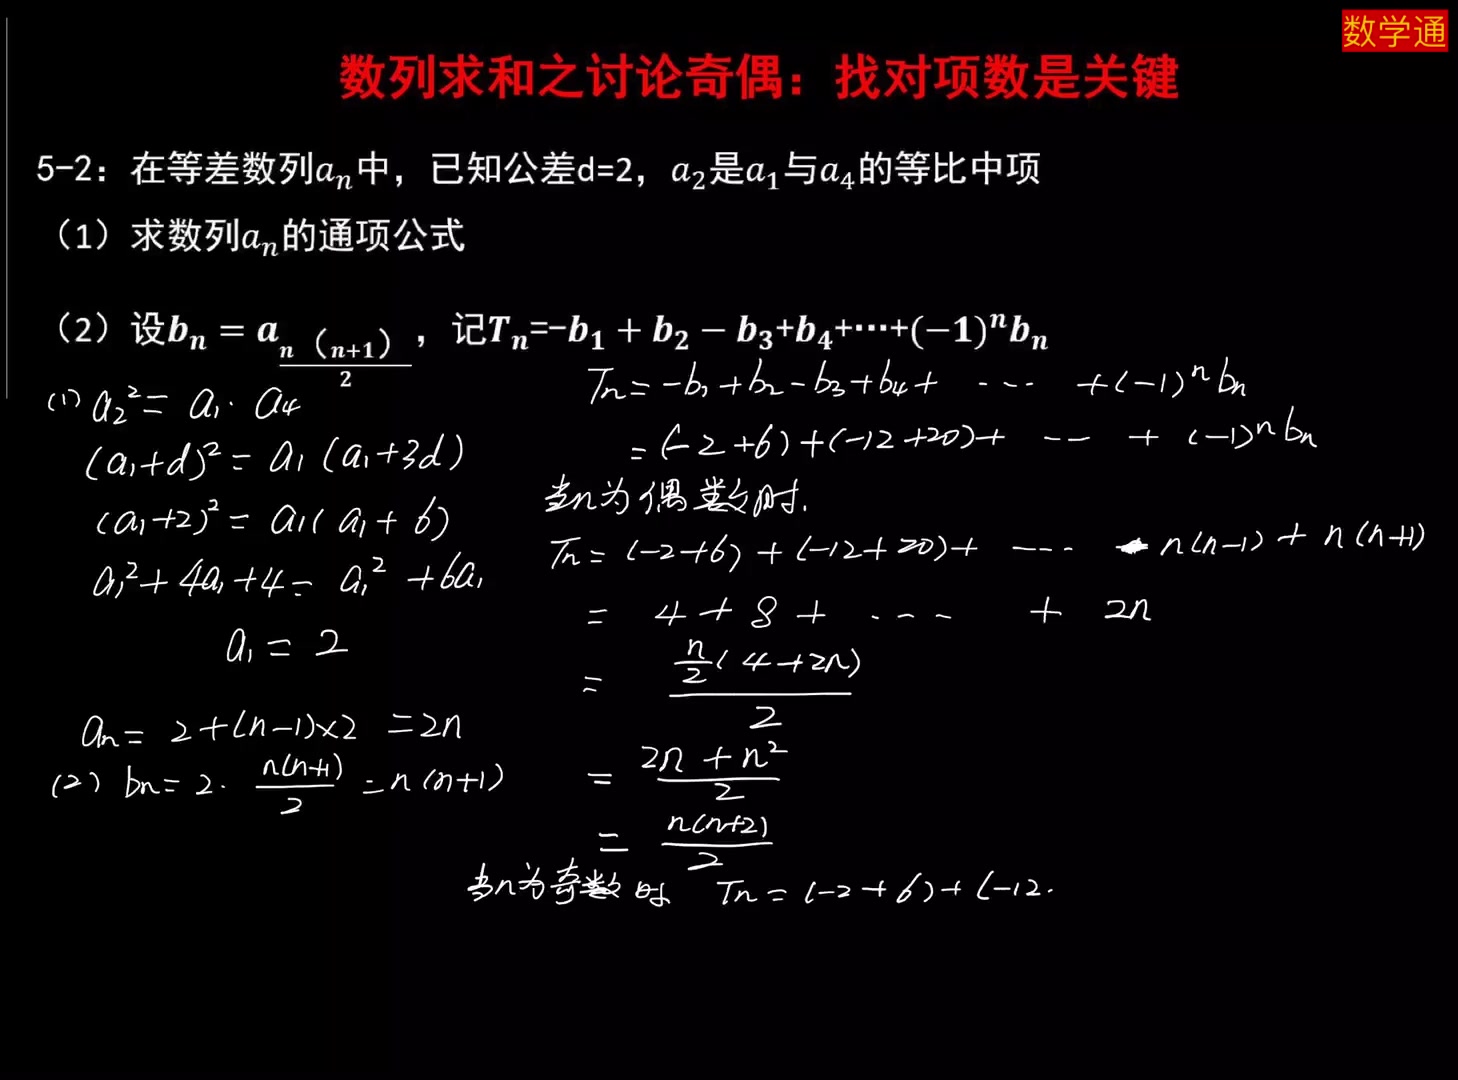 数学通
数列求和之讨论奇偶：找对项数是关键
5-2：在等差数列aₙ中，已知公差d=2，a₂是a₁与a₄的等比中项
（1）求数列aₙ的通项公式
（2）设bₙ = a_{n（n+1）/2}，记Tₙ=-b₁ + b₂ − b₃+b₄+⋯+(−1)ⁿbₙ
(1) a₂² = a₁· a₄
(a₁+d)² = a₁ (a₁+3d)
(a₁+2)² = a₁( a₁+ 6)
a₁²+ 4a₁+4= a₁² +6a₁
a₁ = 2
aₙ= 2+(n-1)×2 =2n
(2) bₙ= 2· n(n+1)/2 = n(n+1)
Tₙ= -b₁+b₂-b₃+b₄+ ---- +(-1)ⁿbₙ
= (-2+6)+(-12+20)+ --- + (-1)ⁿbₙ
当n为偶数时,
Tₙ= (-2+6) + (-12+20)+ ---- n(n-1) + n(n+1)
= 4 + 8 + ---- + 2n
= n/2(4+2n)/2
= 2n + n²/2
= n(n+2)/2
当n为奇数时 Tₙ = (-2+6)+(-12.